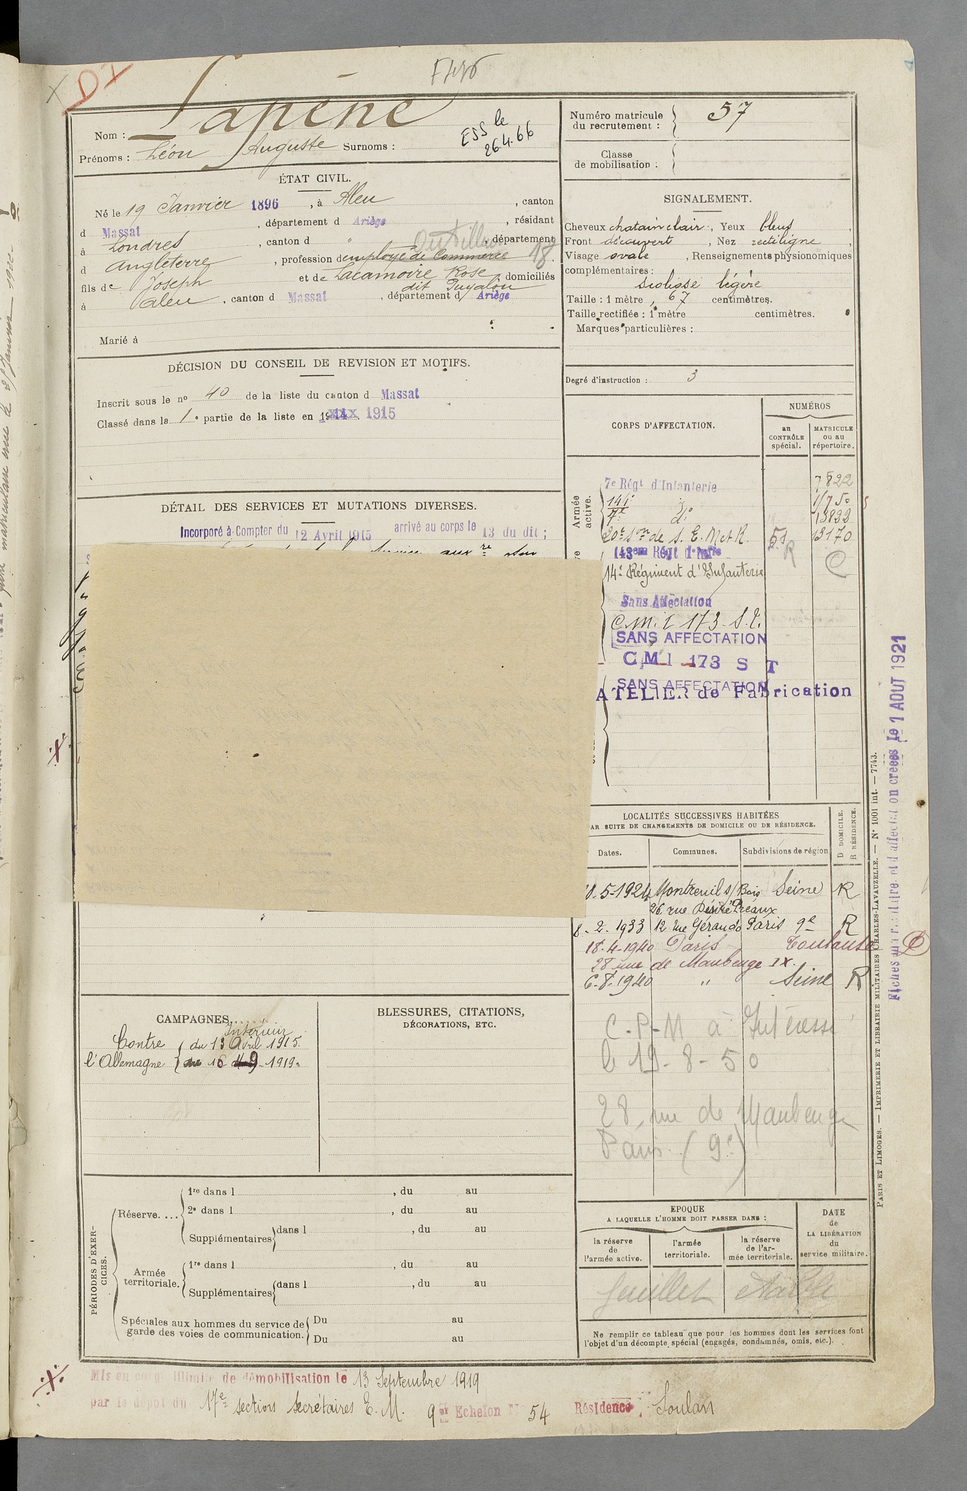 D I
F476
Nom : Lapène
Prénoms : Léon Auguste Surnoms :
ESS le
26.4.66
ÉTAT CIVIL.
Né le 19 Janvier 1896, à Aleu, canton
d Massat, département d Ariège, résidant
à Londres, canton d , département
d Angleterre, profession d employé de Commerce
Outilleur 18
fils de Joseph et de Lacamoire Rose, domiciliés
dit Puyalou
à Aleu, canton d Massat, département d Ariège
Marié à
DÉCISION DU CONSEIL DE REVISION ET MOTIFS.
Inscrit sous le no 40 de la liste du canton d Massat
Classé dans la 1e partie de la liste en 1915
DÉTAIL DES SERVICES ET MUTATIONS DIVERSES.
Incorporé à Compter du 12 Avril 1915 arrivé au corps le 13 du dit ;
Numéro matricule
du recrutement : 57
Classe
de mobilisation :
SIGNALEMENT.
Cheveux chatain clair, Yeux bleus
Front découvert, Nez rectiligne,
Visage ovale, Renseignements physionomiques
complémentaires :
Taille : 1 mètre, 67 centimètres.
Taille rectifiée : 1 mètre centimètres.
Marques particulières :
Degré d'instruction : 3
CORPS D'AFFECTATION.
NUMÉROS
au
CONTRÔLE
spécial.
MATRICULE
ou au
répertoire.
Armée
active.
7e Régt d'Infanterie 7822
141e
7e do 13832
20e Son de S. E. M et R. 13170
143eme Régt d'Infie
14e Régiment d'Infanterie
Sans Affectation
C.M.I 173 S.T.
SANS AFFECTATION
CMI 173 S T
SANS AFFECTATION
ATELIER de Fabrication
LOCALITÉS SUCCESSIVES HABITÉES
PAR SUITE DE CHANGEMENTS DE DOMICILE OU DE RÉSIDENCE.
Dates. Communes. Subdivisions de région
D DOMICILE.
R RÉSIDENCE.
10-5-1924 Montreuil s/ Bois Seine R
26 rue Désiré Préaux
8-2-1933 12 rue Gérando Paris 9e R
18-4-1940 Paris Toulouse D
28 rue de Maubeuge IX.
6-8-1940 " Seine R
C-P-M à Intéressé
le 19-8-50
28, rue de Maubeuge
Paris (9e)
CAMPAGNES.
Intérieur
Contre du 13 Avril 1915
l'Allemagne 1919.
BLESSURES, CITATIONS,
DÉCORATIONS, ETC.
PÉRIODES D'EXERCICES.
Réserve....
1re dans l , du au
2e dans l , du au
Supplémentaires dans l , du au
Armée
territoriale.
1re dans l , du au
Supplémentaires dans l , du au
Spéciales aux hommes du service de
garde des voies de communication.
Du au
Du au
ÉPOQUE
A LAQUELLE L'HOMME DOIT PASSER DANS :
la réserve
de
l'armée active.
l'armée
territoriale.
la réserve
de l'ar-
mée territoriale.
DATE
de
LA LIBÉRATION
du
service militaire.
Feuillet
Ne remplir ce tableau que pour les hommes dont les services font
l'objet d'un décompte spécial (engagés, condamnés, omis, etc.).
Mis en congé illimité de démobilisation le 13 Septembre 1919
par le dépôt du 17e section Secrétaires E. M. 9e Echelon No 54 Résidence Soulan
PARIS ET LIMOGES. — IMPRIMERIE ET LIBRAIRIE MILITAIRES CHARLES-LAVAUZELLE. — No 1001 int. — 7743.
le 1 AOUT 1921